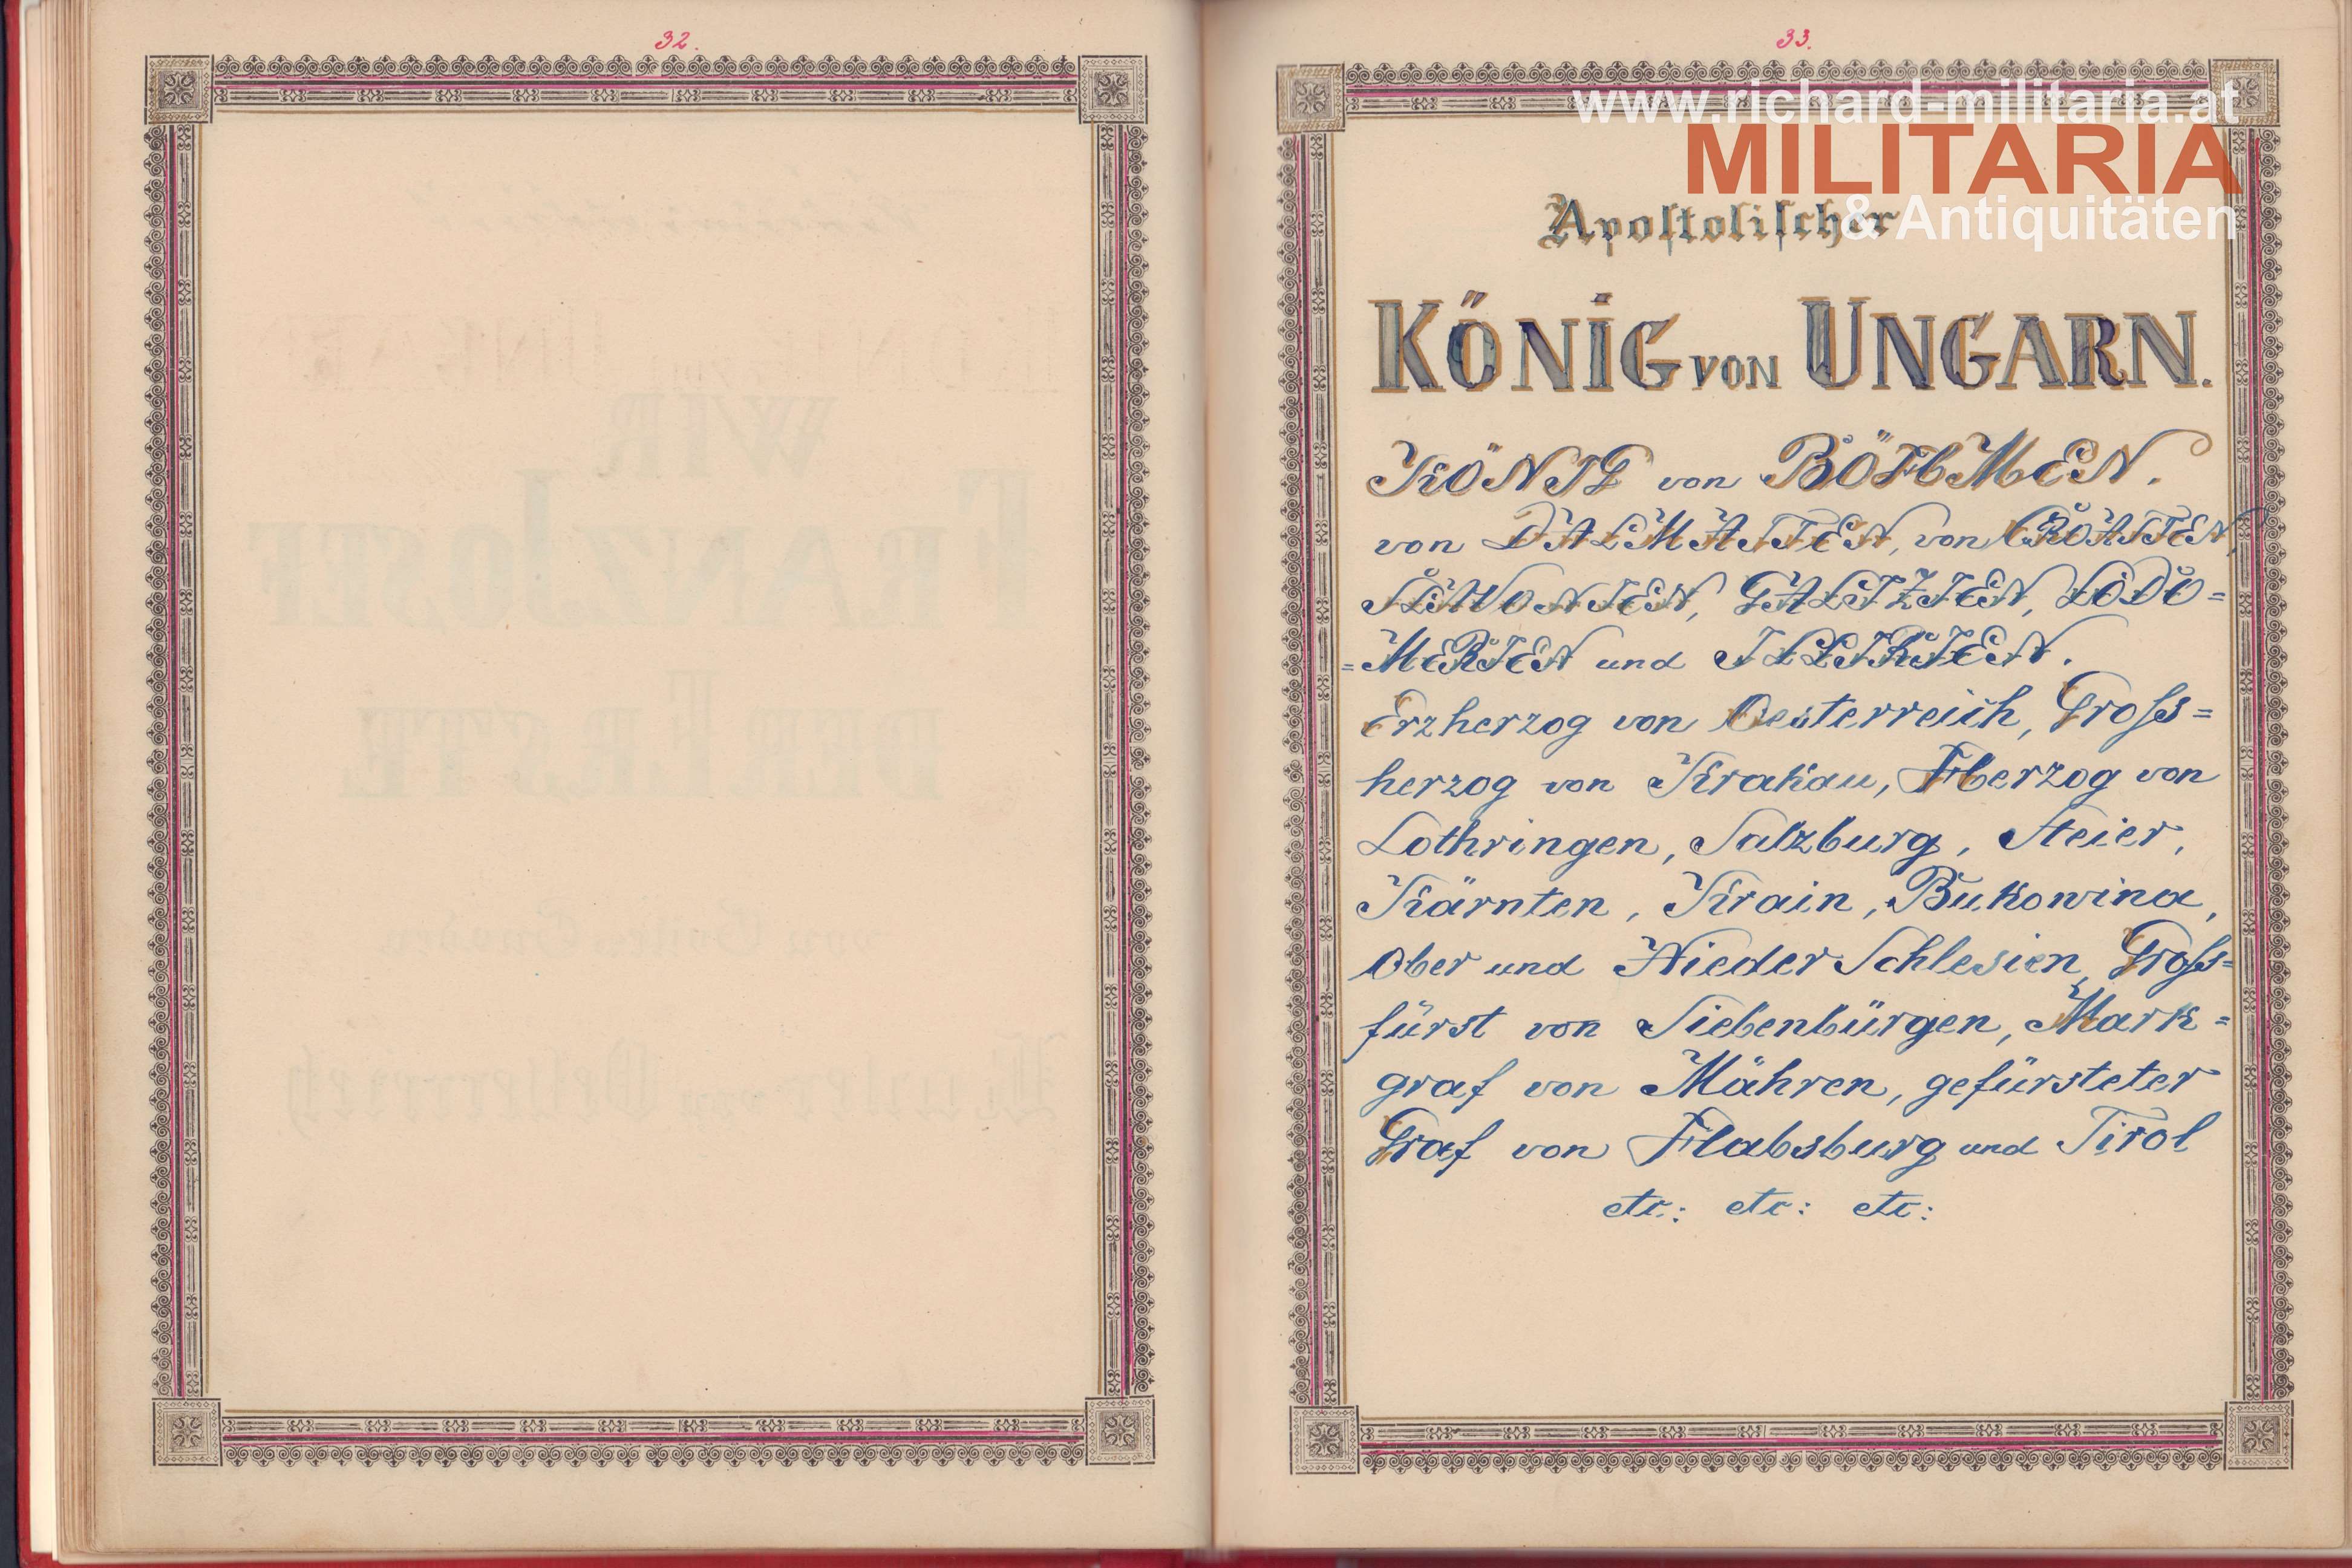 32.
33.
www.richard-militaria.at
MILITARIA
& Antiquitäten
Apostolischer
KÖNIG VON UNGARN.
KÖNIG von BÖHMEN.
von DALMATIEN, von CROATIEN,
SLAVONIEN, GALIZIEN, LODO=
=MERIEN und ILLIRIEN.
Erzherzog von Oesterreich, Gross=
herzog von Krakau, Herzog von
Lothringen, Salzburg, Steier,
Kärnten, Krain, Bukowina,
Ober und Nieder Schlesien, Gross=
fürst von Siebenbürgen, Mark=
graf von Mähren, gefürsteter
Graf von Habsburg und Tirol
etc: etc: etc: